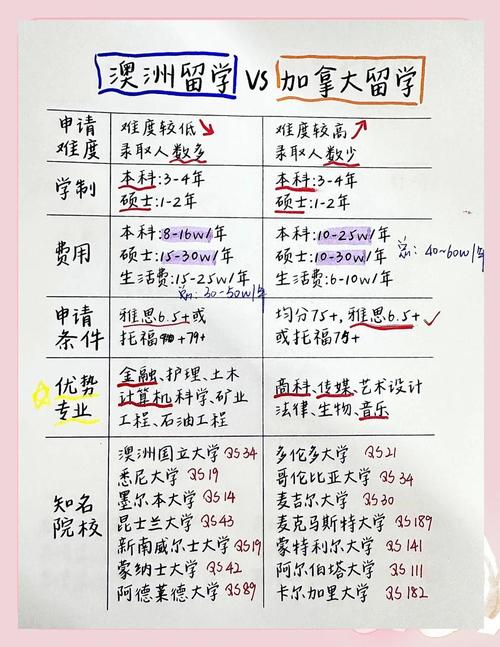 澳洲留学 VS 加拿大留学
申请难度
难度较低↘
录取人数多
难度较高↗
录取人数少
学制
本科:3-4年
硕士:1-2年
本科:3-4年
硕士:1-2年
费用
本科:8-16w/年
硕士:15-30w/年
生活费:15-25w/年
总:30-50w/年
本科:10-25w/年
硕士:10-30w/年
生活费:6-10w/年
总:40~60w/年
申请条件
雅思6.5+或
托福79+
均分75+,雅思6.5+✓
或托福75+
优势专业
金融、护理、土木
计算机科学、矿业
工程、石油工程
商科、传媒、艺术设计
法律、生物、音乐
知名院校
澳洲国立大学QS34
悉尼大学QS19
墨尔本大学QS14
昆士兰大学QS43
新南威尔士大学QS19
蒙纳士大学QS42
阿德莱德大学QS89
多伦多大学QS21
哥伦比亚大学QS34
麦吉尔大学QS30
麦克马斯特大学QS189
蒙特利尔大学QS141
阿尔伯塔大学QS111
卡尔加里大学QS182